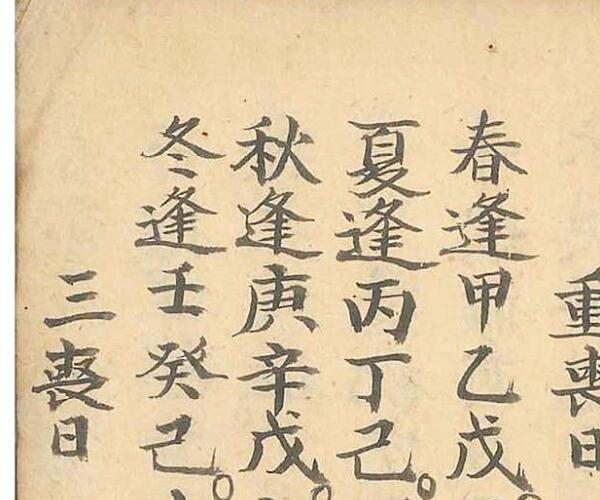 重喪日
春逢甲乙戊
夏逢丙丁己
秋逢庚辛戊
冬逢壬癸己
三喪日